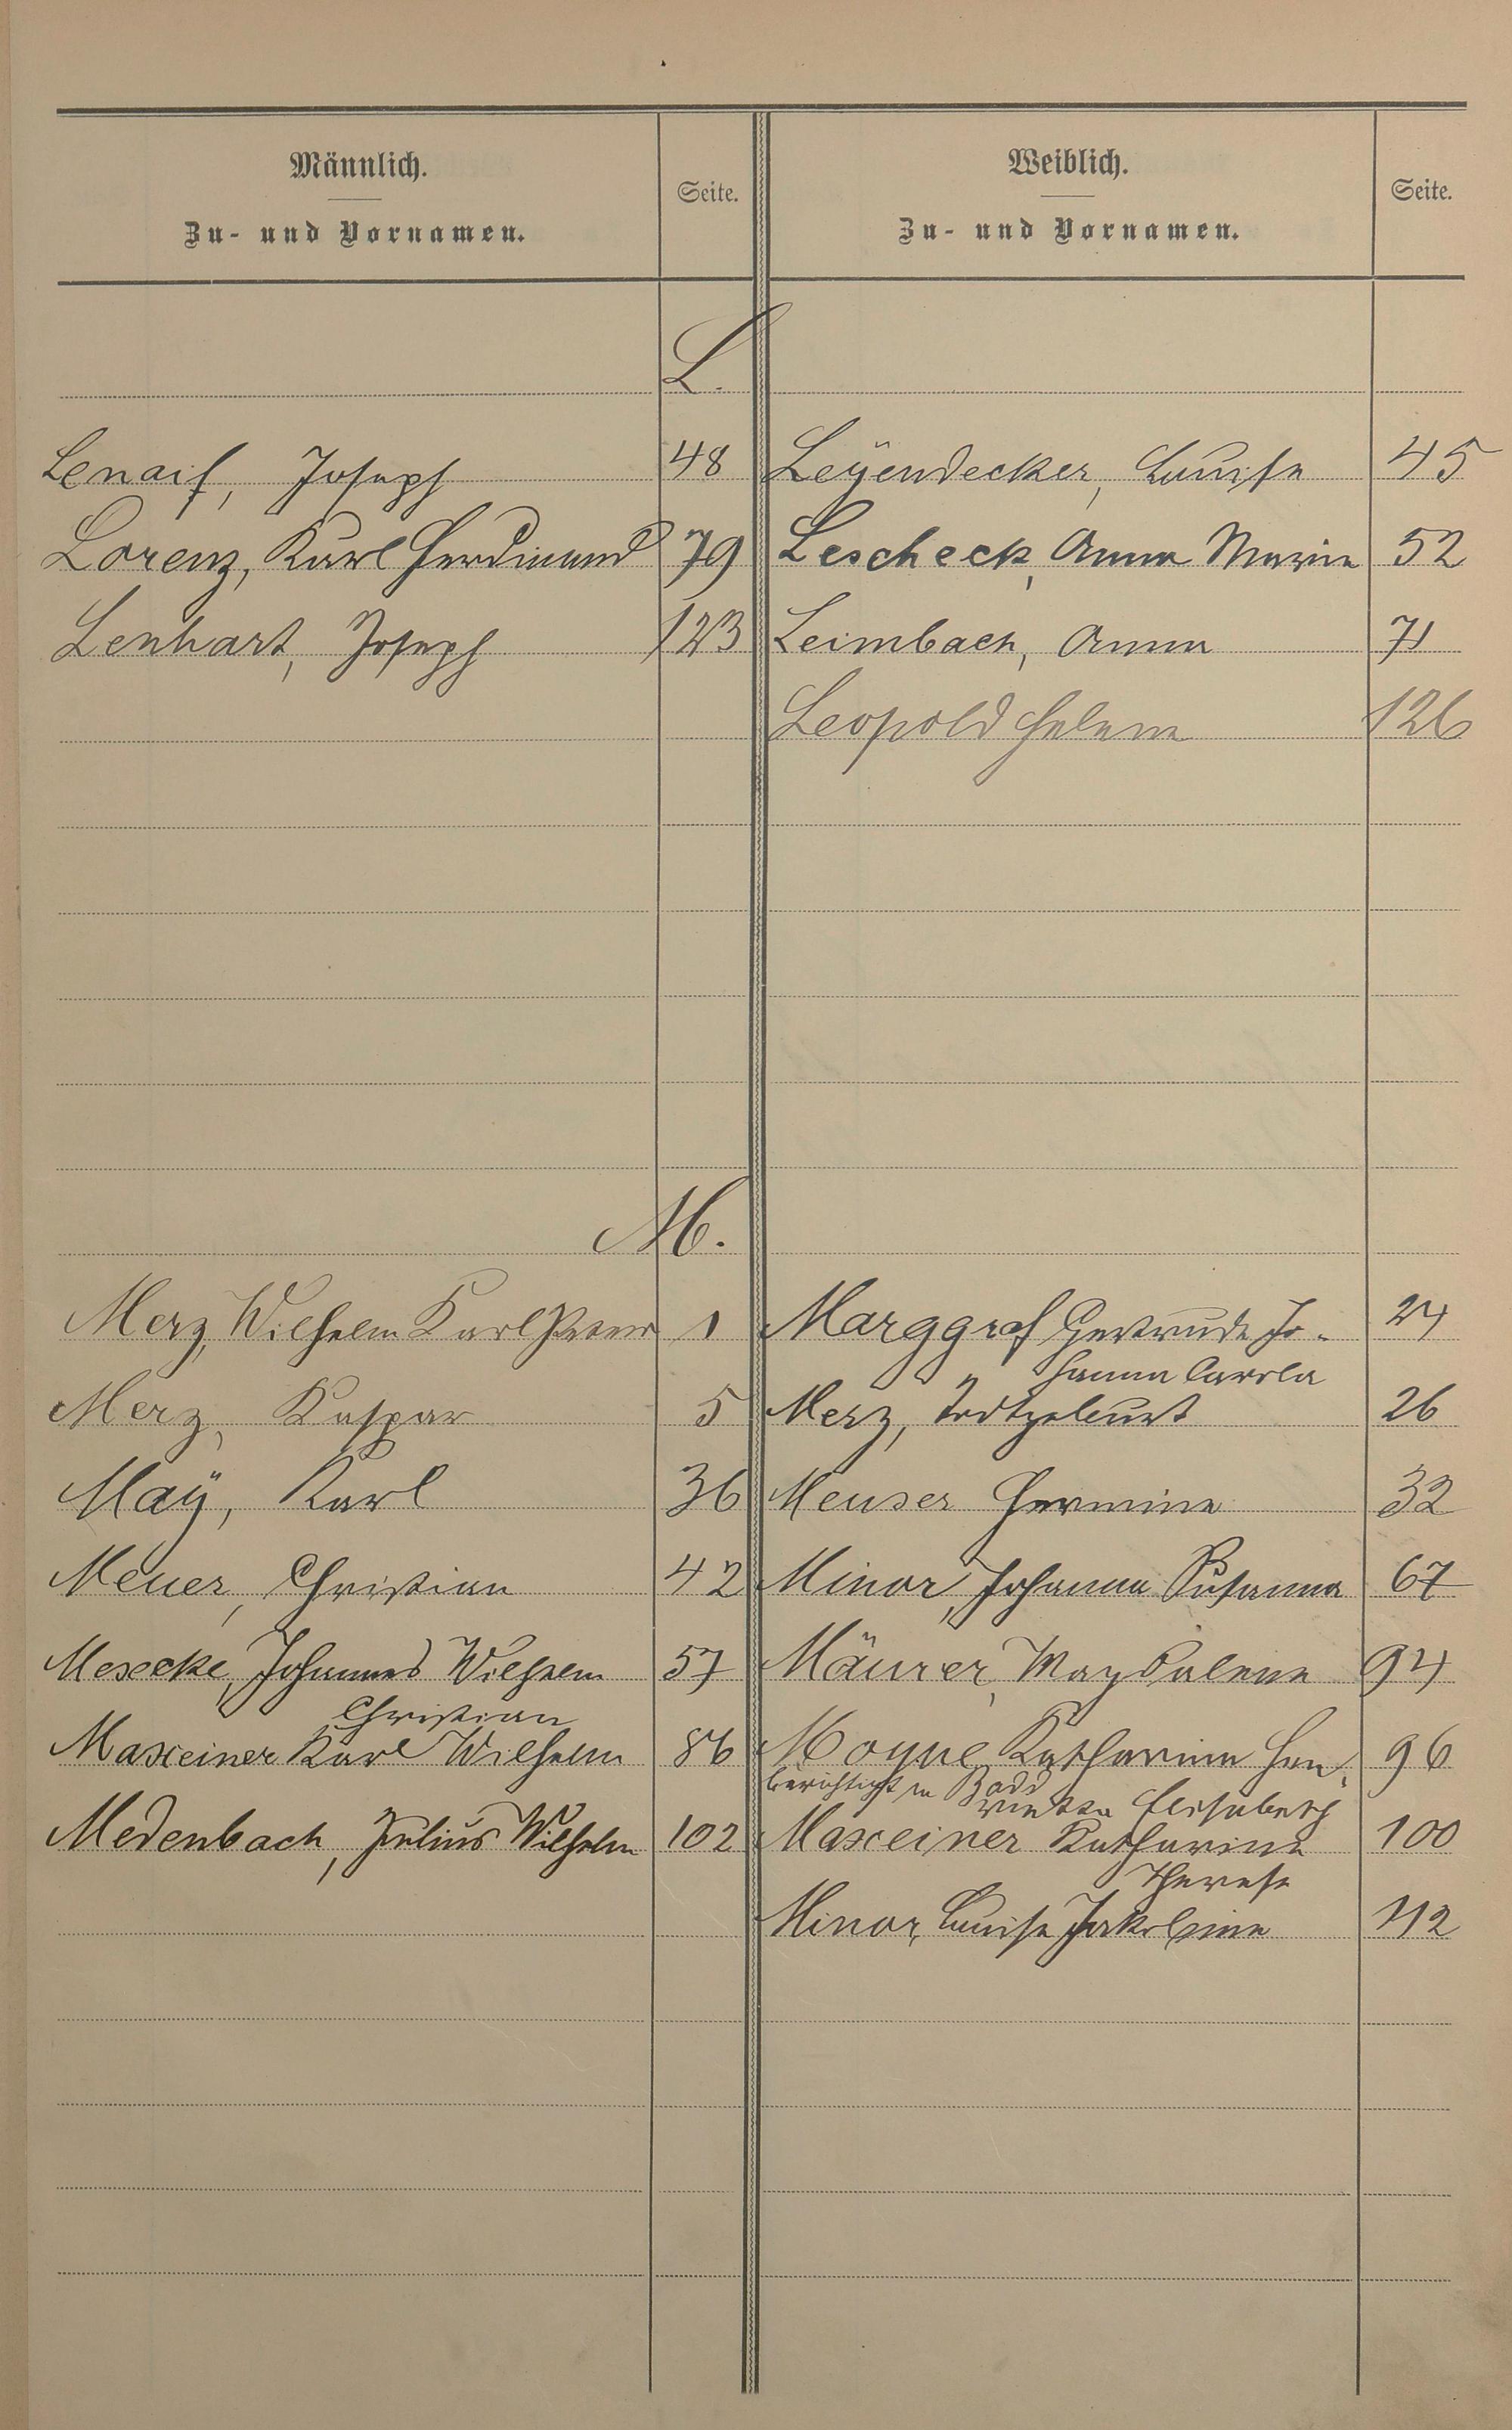 Männlich.
Zu- und Vornamen.
Seite.
Weiblich.
Zu- und Vornamen.
Seite.
L.
Lenaif, Joseph 48 Leÿendecker, Luise 45
Lorenz, Karl Ferdinand 79 Lescheck, Anna Maria 52
Lenhart, Joseph 123 Leimbach, Anna 71
Leopold Helene 126
M.
Merz, Wilhelm Karl Peter 1 Marggraf Gertrude Jo- 24
hanna Carola
Merz, Kaspar 5 Merz, Todtgeburt 26
Maÿ, Karl 36 Meuser Hermine 32
Meuer, Christian 42 Minor, Johanna Susanna 67
Mesecke, Johannes Wilhelm 57 Mäurer, Magdalene 94
Christian
Maxeiner Karl Wilhelm 86 Katharina Hen- 96
berichtigt in
riette Elisabeth
Medenbach, Julius Wilhelm 102 Maxeiner Katharina 100
Therese
Minor, Luise Jakobine 112